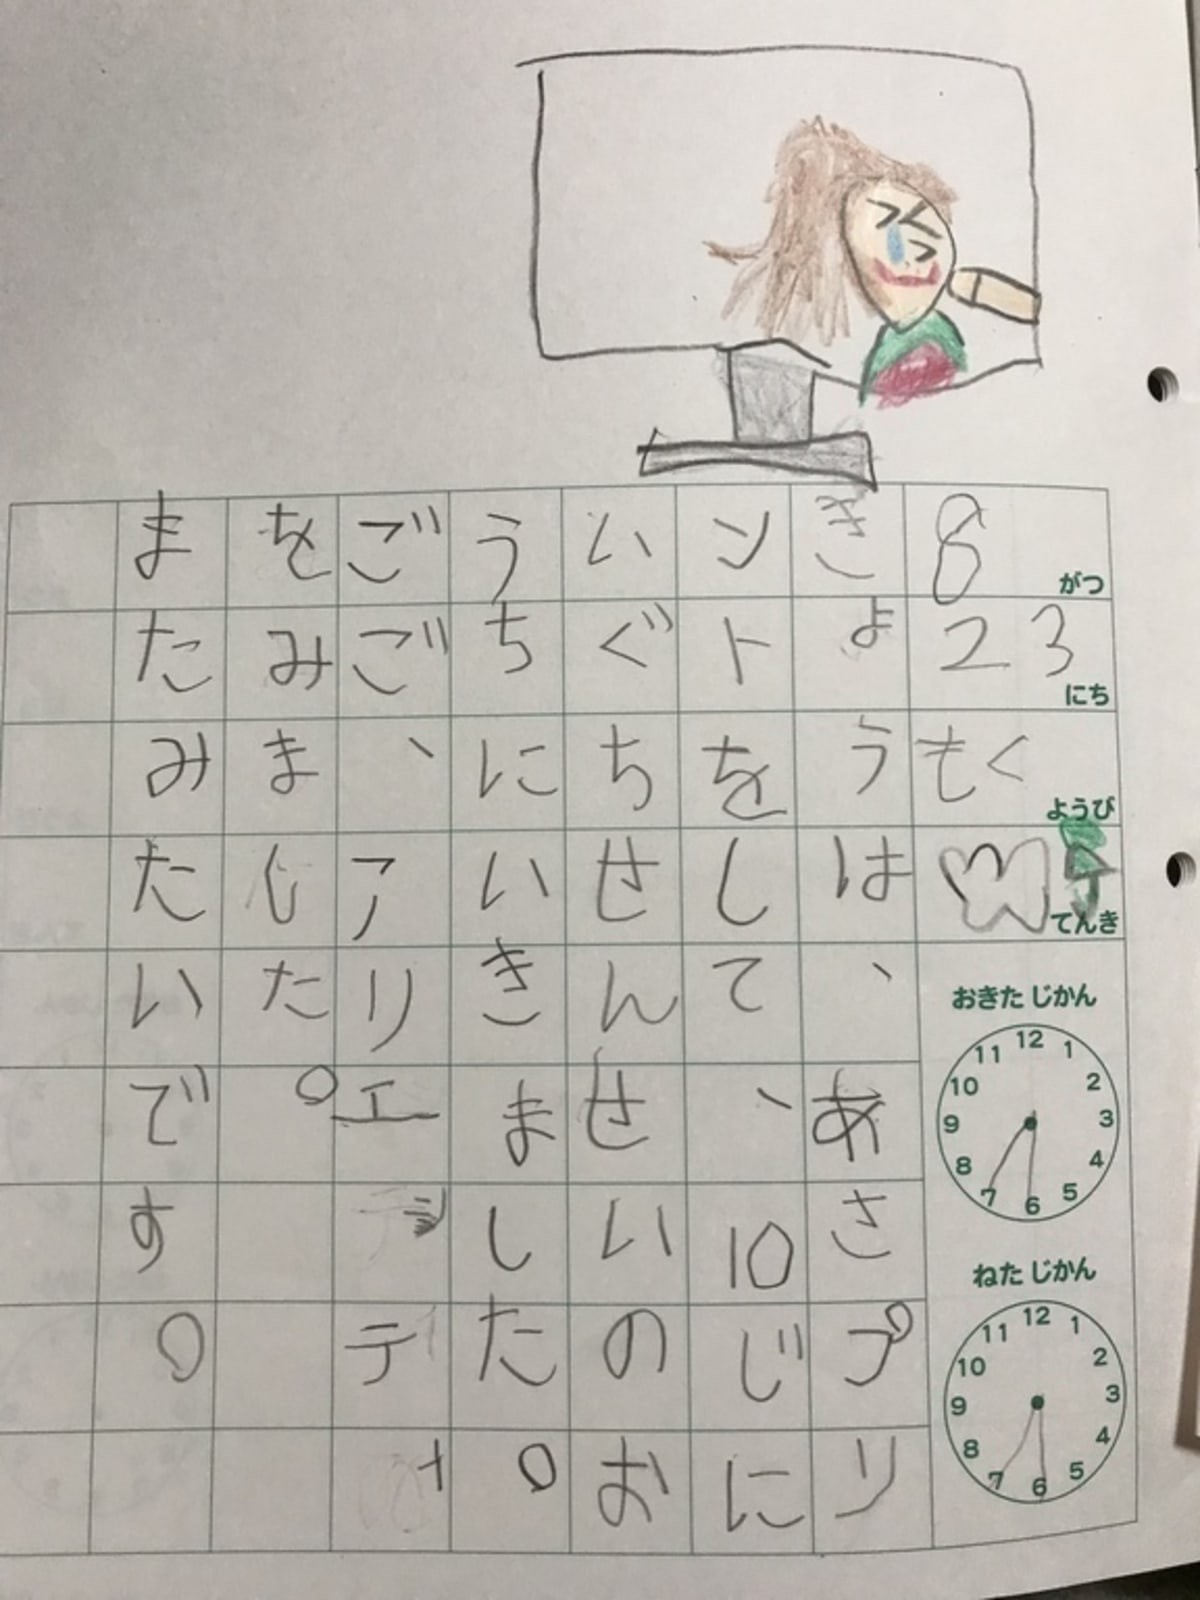 8がつ
23にち
もくようび
てんき
おきた じかん
12 1 2 3 4 5 6 7 8 9 10 11
ねた じかん
12 1 2 3 4 5 6 7 8 9 10 11
きょうは、あさプリ
ントをして、10じに
いぐちせんせいのお
うちにいきました。
ごご、アリエッテｨ
をみました。
またみたいです。